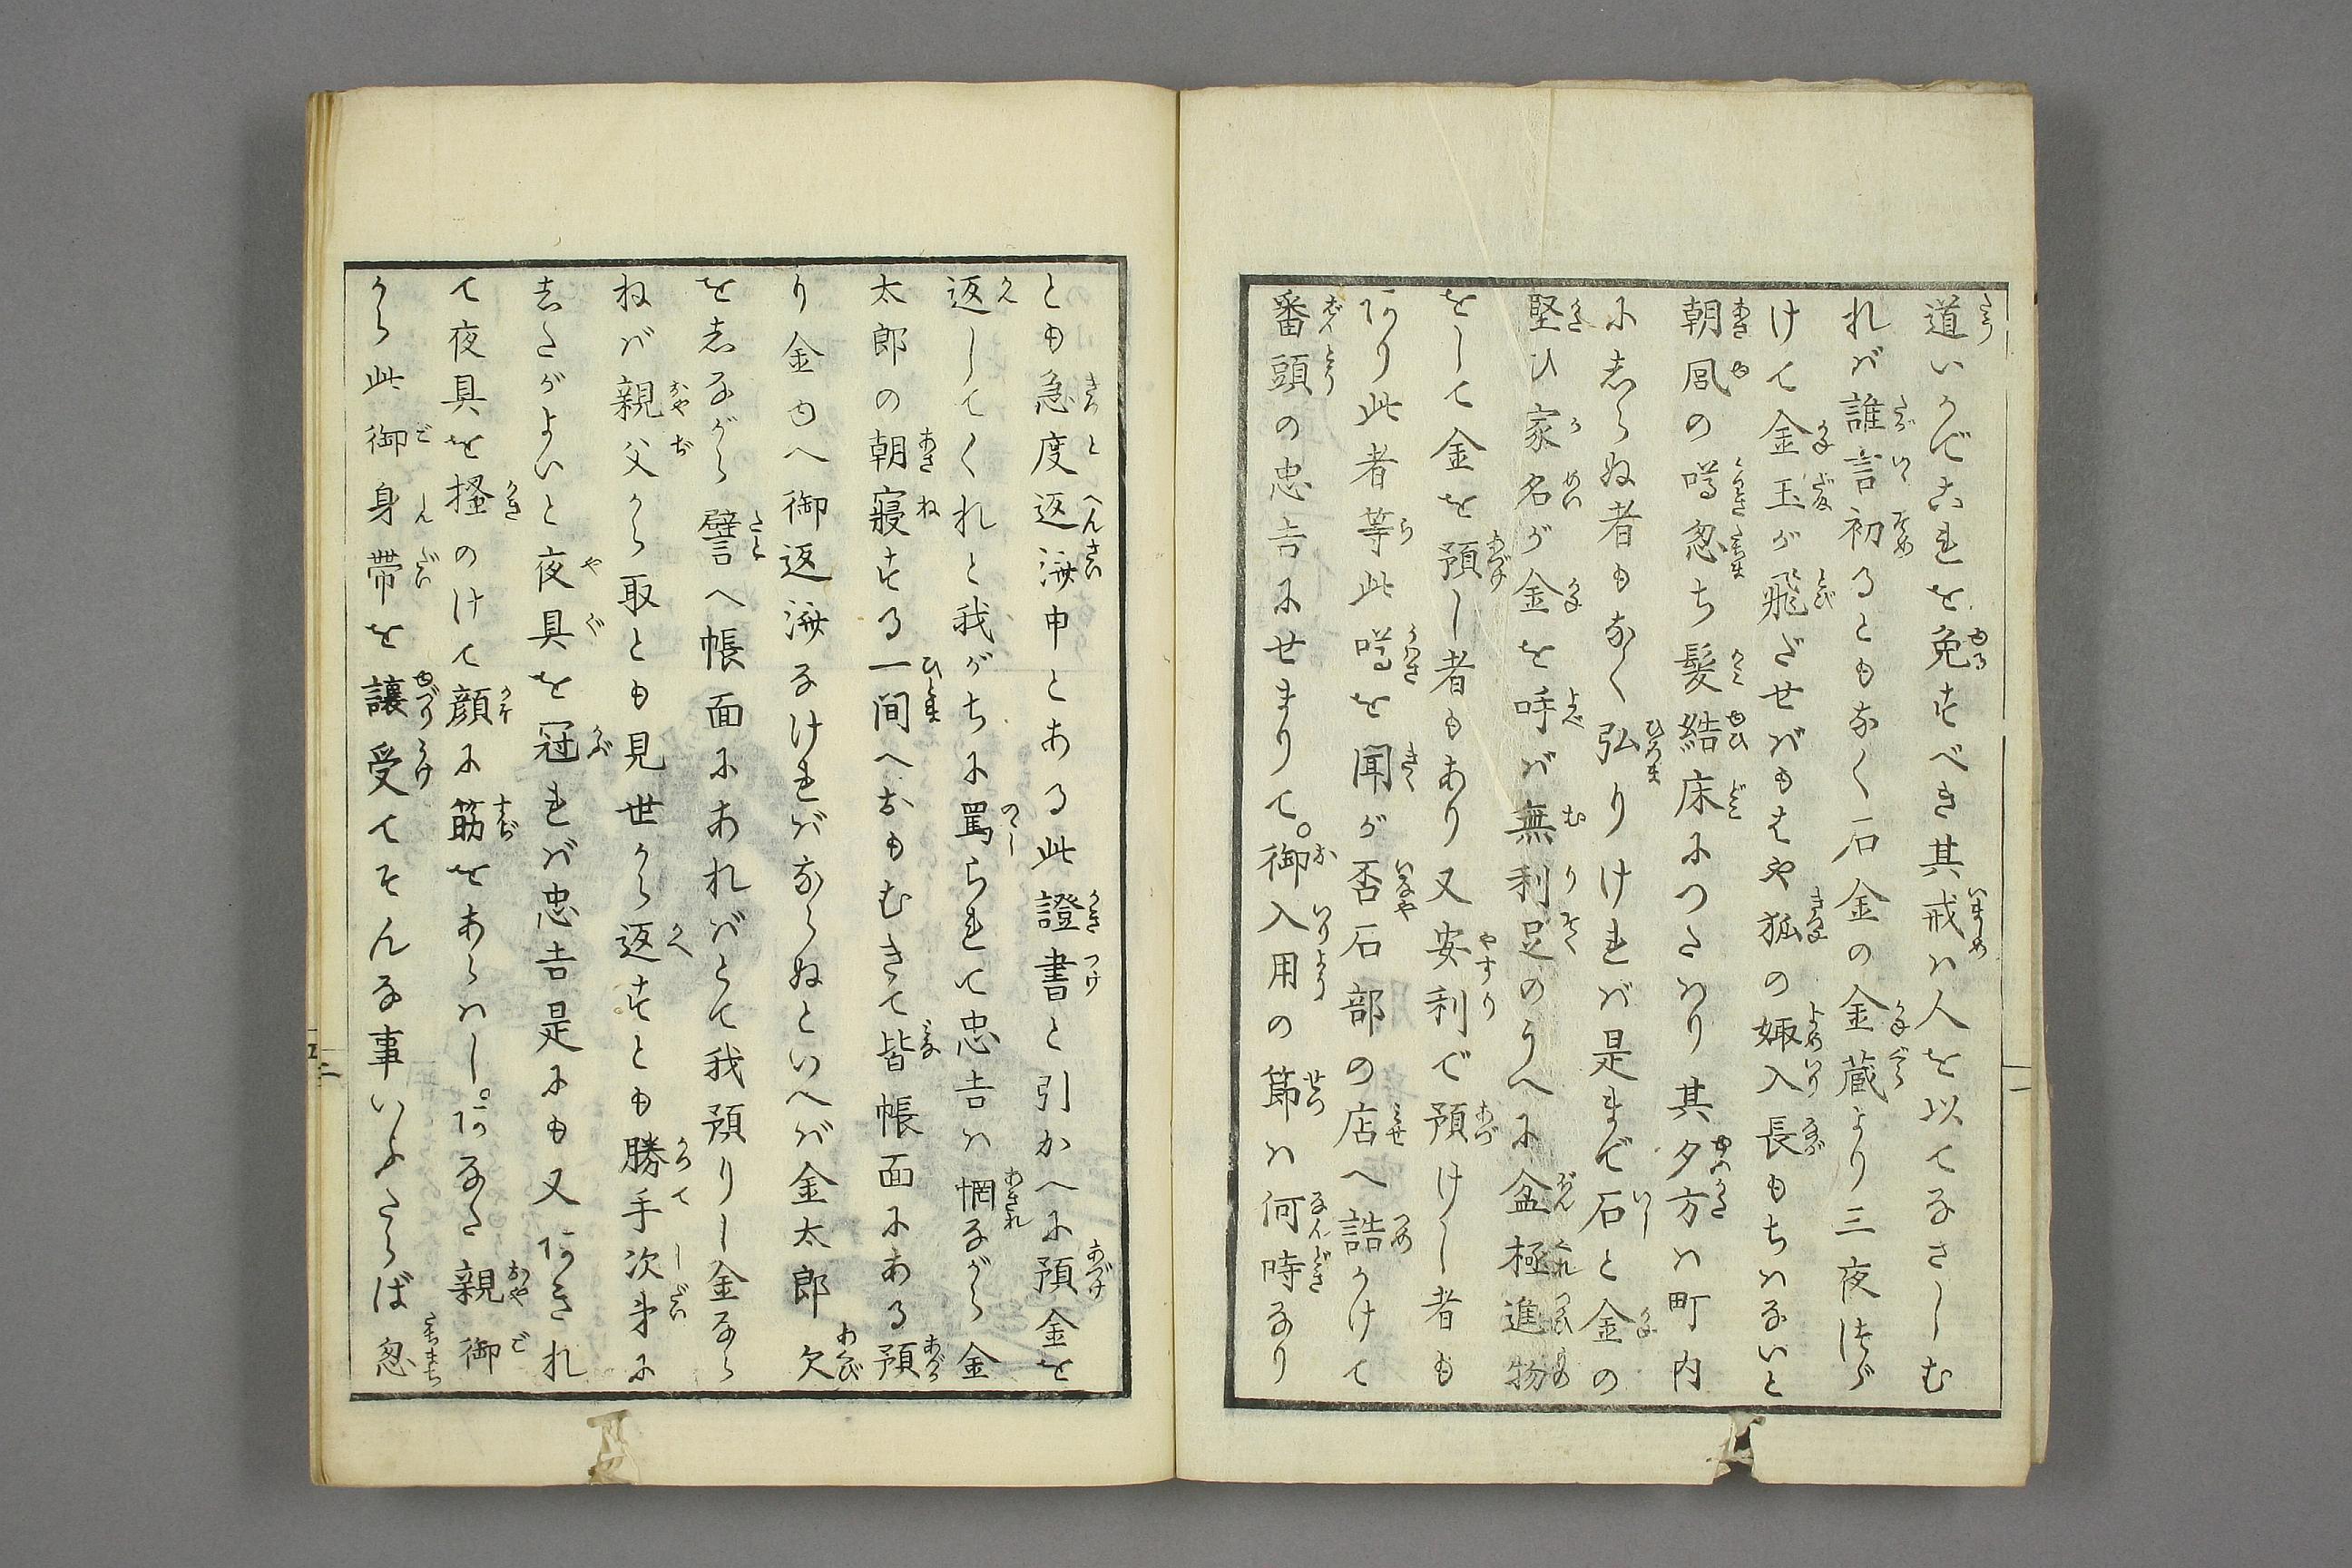 道いかでこれを免すべき其戒ハ人を以てなさしむ
れバ誰言初るともなく石金の金蔵より三夜つゞ
けて金玉が飛ださせバもはや狐の娵入長もちハないと
朝風の噂忽ち髪結床につたハり其夕方ハ町内
にしらぬ者もなく弘りけれバ是まで石と金の
堅ひ家名が金を呼バ無利足のうへに盆極進物
をして金を預し者もあり又安利で預けし者も
あり此者等此噂を聞が否石部の店へ詰かけて
番頭の忠吉にせまりて。御入用の節ハ何時なり
とも急度返済申とある此證書と引かへに預金を
返してくれと我がちに罵られて忠吉ハ惘ながら金
太郎の朝寢する一間へおもむきて皆帳面にある預
り金ゆへ御返済なけれバならぬといへバ金太郎欠
をしながら譬へ帳面にあれバとて我預りし金なら
ねバ親父から取とも見世から返すとも勝手次第に
したがよいと夜具を冠れバ忠吉是にも又あきれ
て夜具を掻のけて顔に筋をあらハし。あなた親御
から此御身帯を讓受てそんな事いふたらば忽